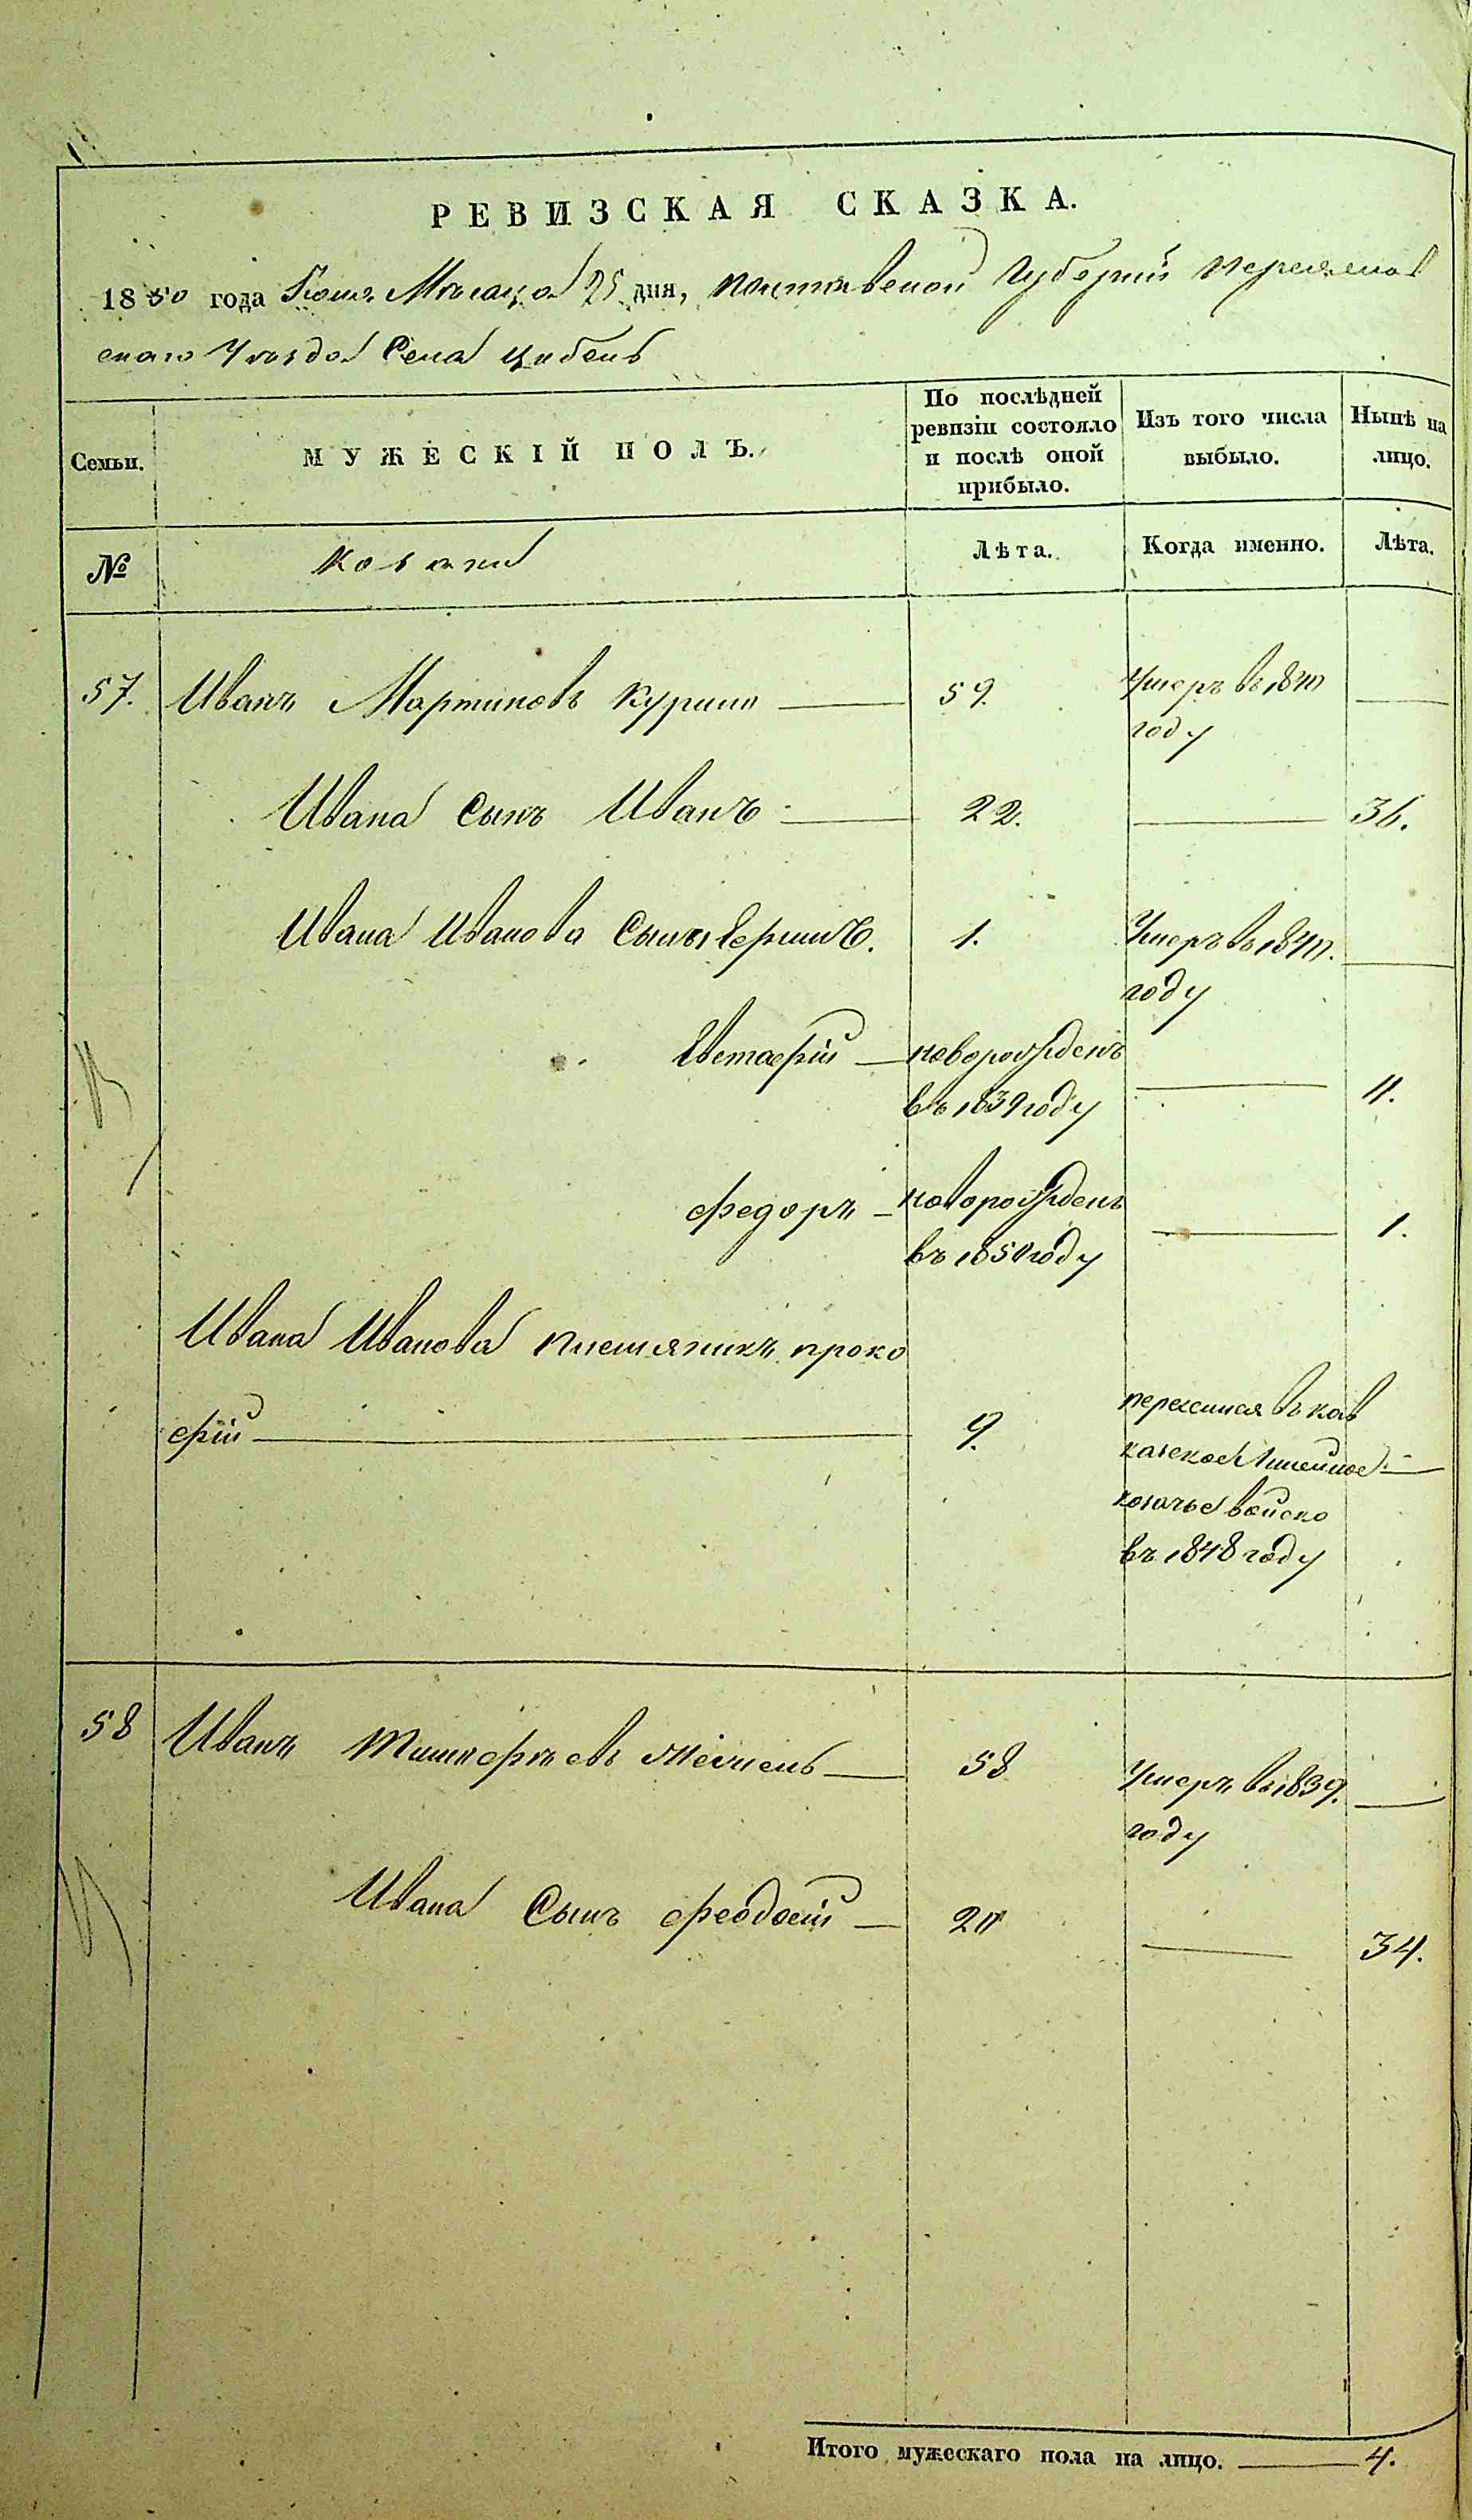 РЕВИЗСКАЯ СКАЗКА.
1850 года Мѣсяца 25 дня, Полтавской Губерніи Переяслав
скаго Уѣзда Села Цибель
Семьи.
МУЖЕСКІЙ ПОЛЪ.
По послѣдней
ревизіи состояло
и послѣ оной
прибыло.
Изъ того числа
выбыло.
Нынѣ на
лицо.
№
Козаки
Лѣта.
Когда именно.
Лѣта.
57. Иванъ Мартиновъ 59. Умеръ въ 1840
году
Ивана Сынъ Иванъ 22. 36.
Ивана Иванова Сыны 1. Умеръ въ 1840.
году
Евстафій новорожденъ
въ 1839 году 11.
Федоръ новорожденъ
въ 1850 году 1.
Ивана Иванова племяникъ Проко
фій 9. перечислился въ кав
казское Линейное
козачье войско
въ 1848 году
58 Иванъ Тимофѣевъ 58 Умеръ въ 1839.
году
Ивана Сынъ Феодосій 20 34.
Итого мужескаго пола на лицо. 4.